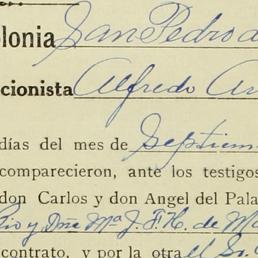 olonia San Pedro d
cionista Alfredo Ar
días del mes de Septiem
comparecieron, ante los testigos
don Carlos y don Angel del Pala
Rio y Dña Mª J. F. H. de Ma
contrato, y por la otra el Sr.